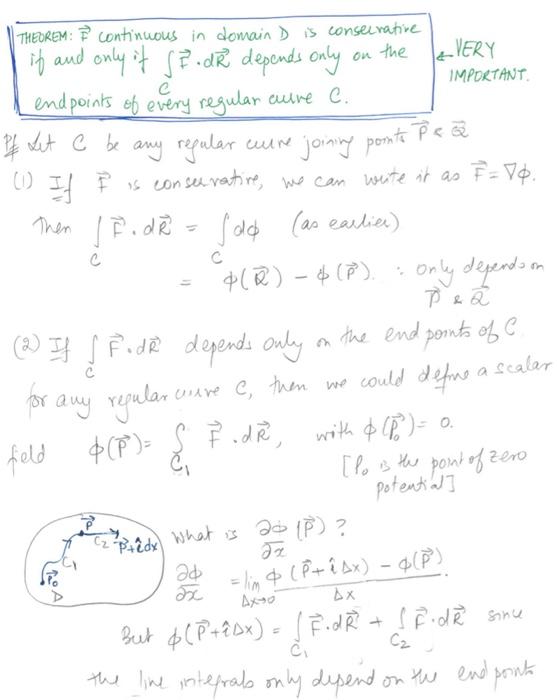 THEOREM: F⃗ continuous in domain D is conservative
if and only if ∫_C F⃗·dR⃗ depends only on the
endpoints of every regular curve C.
← VERY
IMPORTANT.
Pf Let C be any regular curve joining points P⃗ & Q⃗
(1) If F⃗ is conservative, we can write it as F⃗ = ∇ϕ.
Then ∫_C F⃗·dR⃗ = ∫_C dϕ (as earlier)
= ϕ(Q⃗) − ϕ(P⃗). ∴ only depends on
P⃗ & Q⃗
(2) If ∫_C F⃗·dR⃗ depends only on the end points of C
for any regular curve C, then we could define a scalar
field ϕ(P⃗) = ∫_C₁ F⃗·dR⃗, with ϕ(P⃗₀) = 0.
[P₀ is the point of zero
potential]
P⃗
C₂ P⃗+îdx
C₁
P⃗₀
D
What is ∂ϕ/∂x (P⃗)?
∂ϕ/∂x = lim Δx→0 ϕ(P⃗+îΔx) − ϕ(P⃗) / Δx.
But ϕ(P⃗+îΔx) = ∫_C₁ F⃗·dR⃗ + ∫_C₂ F⃗·dR⃗ since
the line integrals only depend on the end points